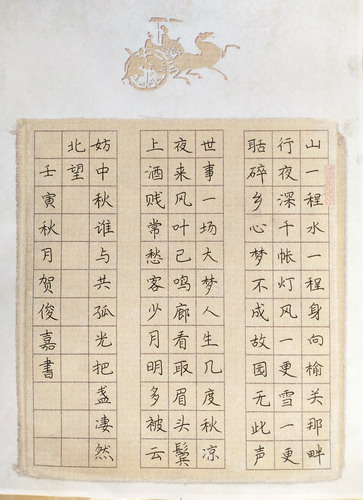 山一程水一程身向榆关那畔
行夜深千帐灯风一更雪一更
聒碎乡心梦不成故园无此声
世事一场大梦人生几度秋凉
夜来风叶已鸣廊看取眉头鬓
上酒贱常愁客少月明多被云
妨中秋谁与共孤光把盏凄然
北望
壬寅秋月贺俊嘉書